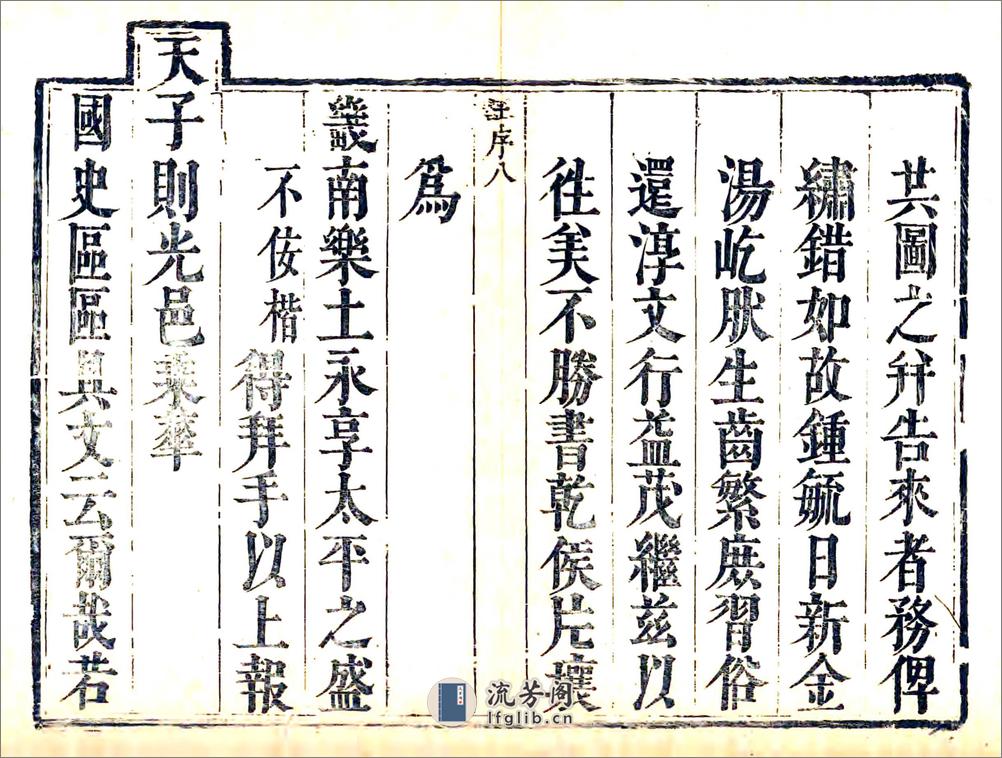 共圖之幷告來者務俾
繡錯如故鍾毓日新金
湯屹肰生齒繁庶習俗
還淳文行益茂繼茲以
徃美不勝書乾侯片壤
序八
爲
畿南樂土永享太平之盛
不佞楷得拜手以上報
天子則光邑乗華
國史區區具文云爾哉若
流芳阁
lfglib.cn